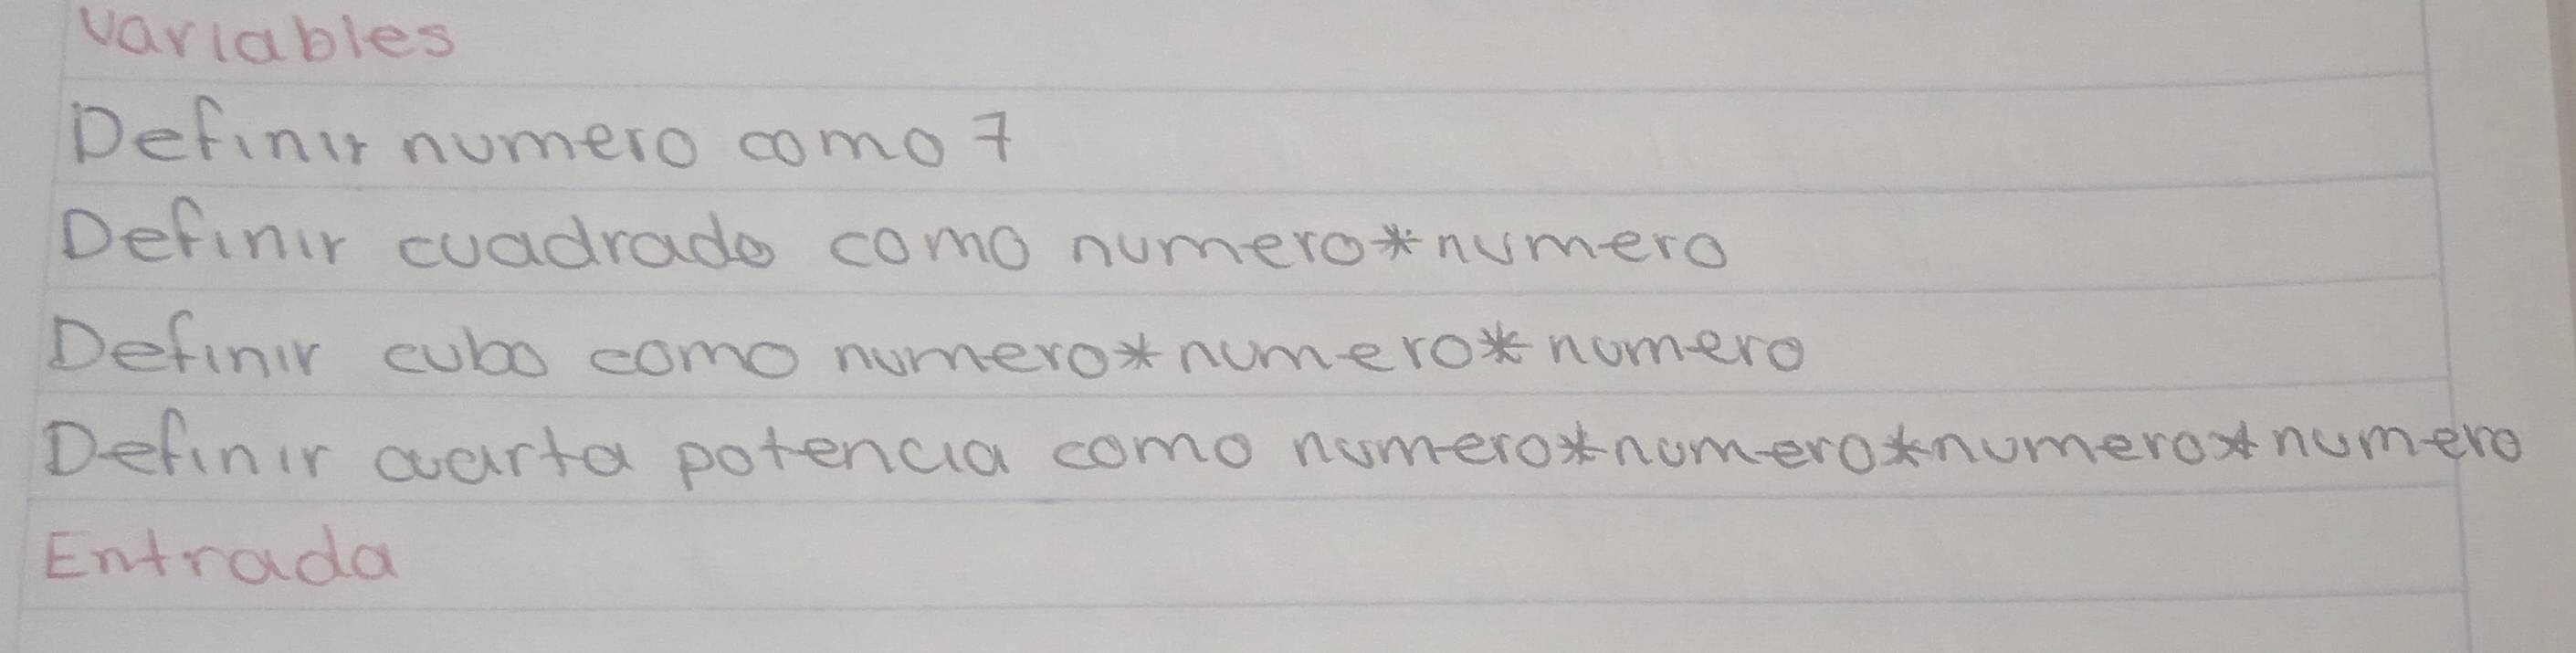 variables
Definir numero como 7
Definir cuadrado como numero*numero
Definir cubo como numero*numero*numero
Definir cuarta potencia como numero*numero*numero*numero
Entrada